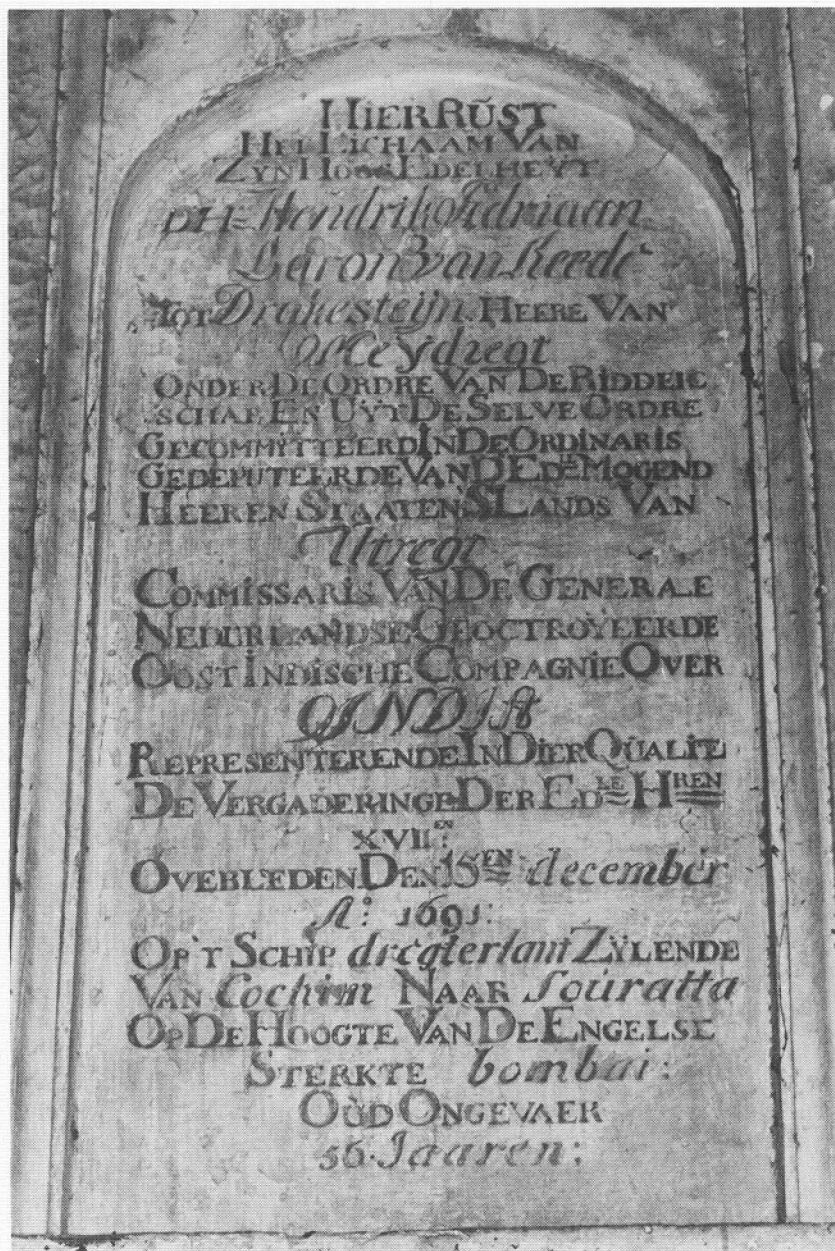 HIER RŬST
HET LICHAAM VAN
ZYN HOOG EDELHEŸT
DH= Hendrik Adriaan
Baron van Reede
TOT Drakesteijn HEERE VAN
Meydregt
ONDER DE ORDRE VAN DE RIDDER
SCHAP EN UYT DE SELVE ORDRE
GECOMMITTEERD IN DE ORDINARIS
GEDEPUTEERDE VAN D'EDLE MOGEND
HEEREN STAATEN SLANDS VAN
Utregt
COMMISSARIS VAN DE GENERALE
NEDERLANDSE GEOCTROYEERDE
OOST INDISCHE COMPAGNIE OVER
INDIA
REPRESENTERENDE IN DIER QŬALITE
DE VERGADERINGE DER EDLE HREN
XVIIEN:
OVERLEDEN DEN 15EN december
Aº: 1691:
OP'T SCHIP dregterlant ZYLENDE
VAN Cochim NAAR Soŭratta
OP DE HOOGTE VAN DE ENGELSE
STERKTE bombai:
OŬD ONGEVAER
56 Jaaren: